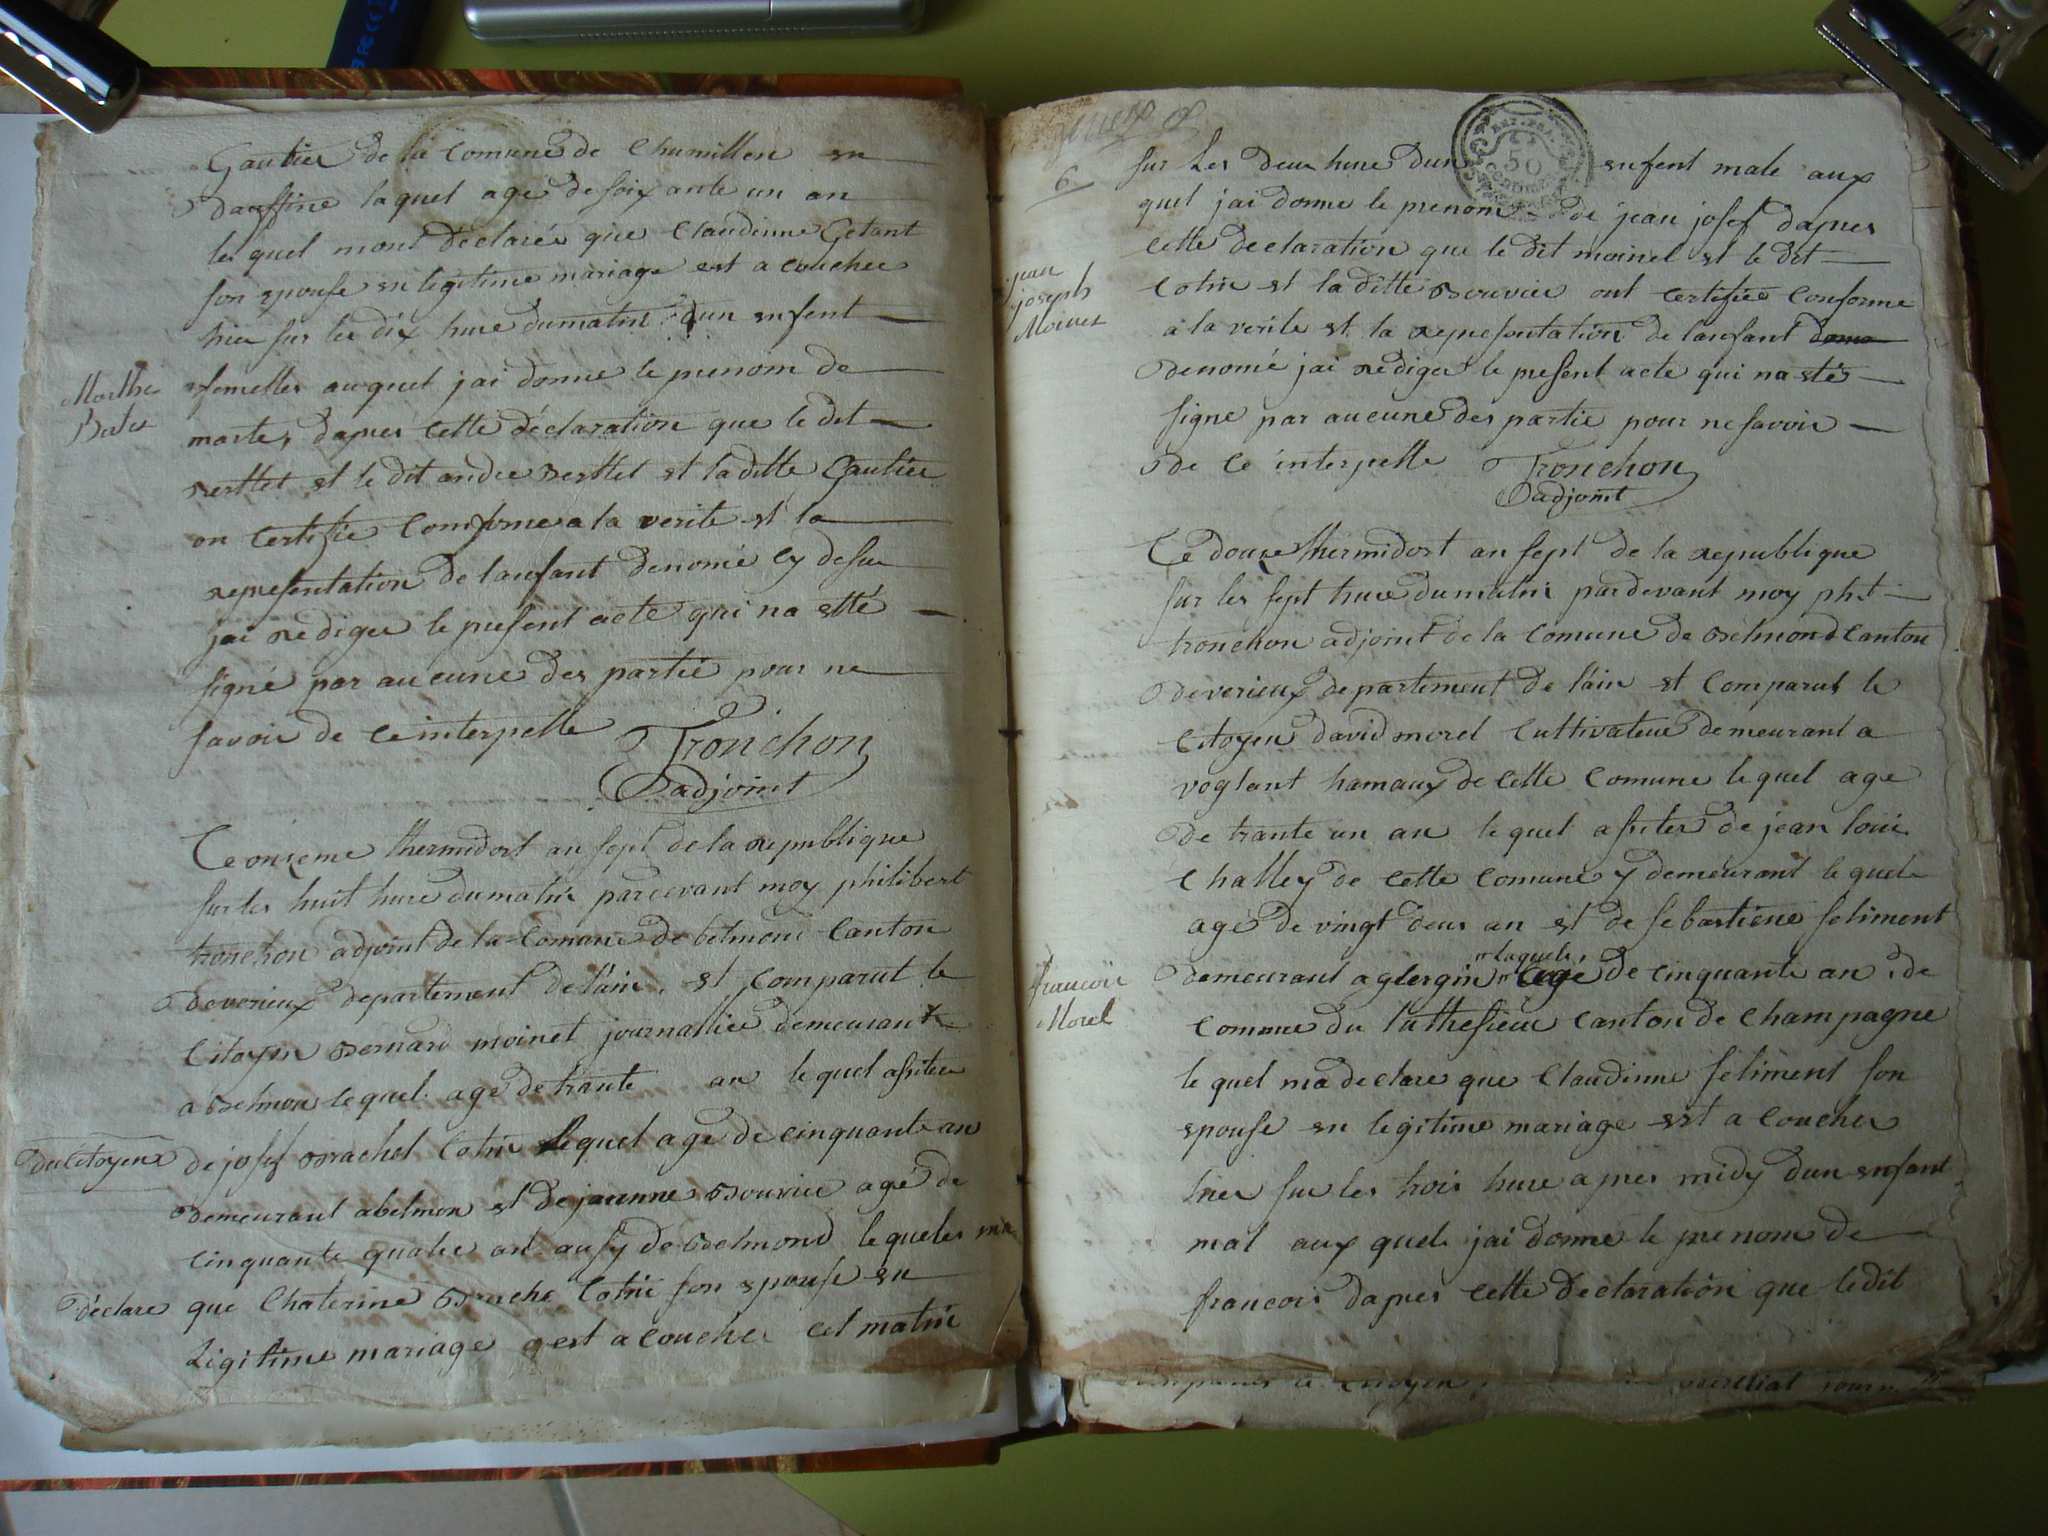 Gautier de la Comune de Chumillen en
dauffine laquel age de soixante un an
les quel mont déclarée que Claudinne Getant
son epouse en legitime mariage est a coucher
hier sur les dix hure du matin dun enfent
femelles auquel jai donne le prenom de
Marthe
marte, dapres cette déclaration que le dit
et le dit andre et la ditte Gautier
on Certifie Comforme a la verite et la
representation de lanfant denomé Cy desu
jai rediger le present acte qui na etté
signé par au cune des partie pour ne
savoir de ce interpelle
Tronchon
adjoint
Ce onzeme thermidort an sept de la republique
sur les huit hure du matin pardevant moy philibert
tronchon adjoint de la Comune de belmond Canton
de verieux departement de l'ain, et Comparut le
Citoyen Bernard moinet journallier demeurant
a Belmon lequel age de trante an le quel assiter
du Citoyen
de josef Brachet Cotin lequel age de cinquante an
demeurant a belmon et de jeannne Bouvier agé de
cinquante quatre an aussy de Belmond lequeles ma
déclare
que Chaterine Brache Cotin son epouse en
Ligitime mariage est a coucher cet matin
6
sur Les deux hure dun enfent male aux
REP. FRA.
50
quel jai donne le prenom de jean josef dapres
cette declaration que le dit moinel et le dit
jean
joseph
Moinet
Cotin et la ditte Bouvier ont certifiee Conforme
a la verite et la representation de lanfant
denomé jai rediger le present acte qui na eté
signe par au cune des partie pour ne savoir
de Ce interpelle
Tronchon
adjoint
Ce douze thermidort an sept de la republique
sur les sept hure du matin pardevant moy phit
tronchon adjoint de la Comune de Belmond Canton
de verieux departement de l'ain et Comparut le
Citoyen david morel Cultivateur demeurant a
voglant hamaux de cette Comune le quel age
de trante un an le quel assiter de jean loui
Challey de cette Comune y demeurant le quel
agé de vingt deux an et de sebastiene seliment
laquele
demeurant a glergin age de cinquante an de
francois
Morel
Comme du luthesieu Canton de Champagne
le quel ma declare que Claudinne seliment son
epouse en legitime mariage est a coucher
hier sur les trois hure apres midy dun enfant
mal aux quel jai donné le prenom de
francois dapres cette declaration que ledit